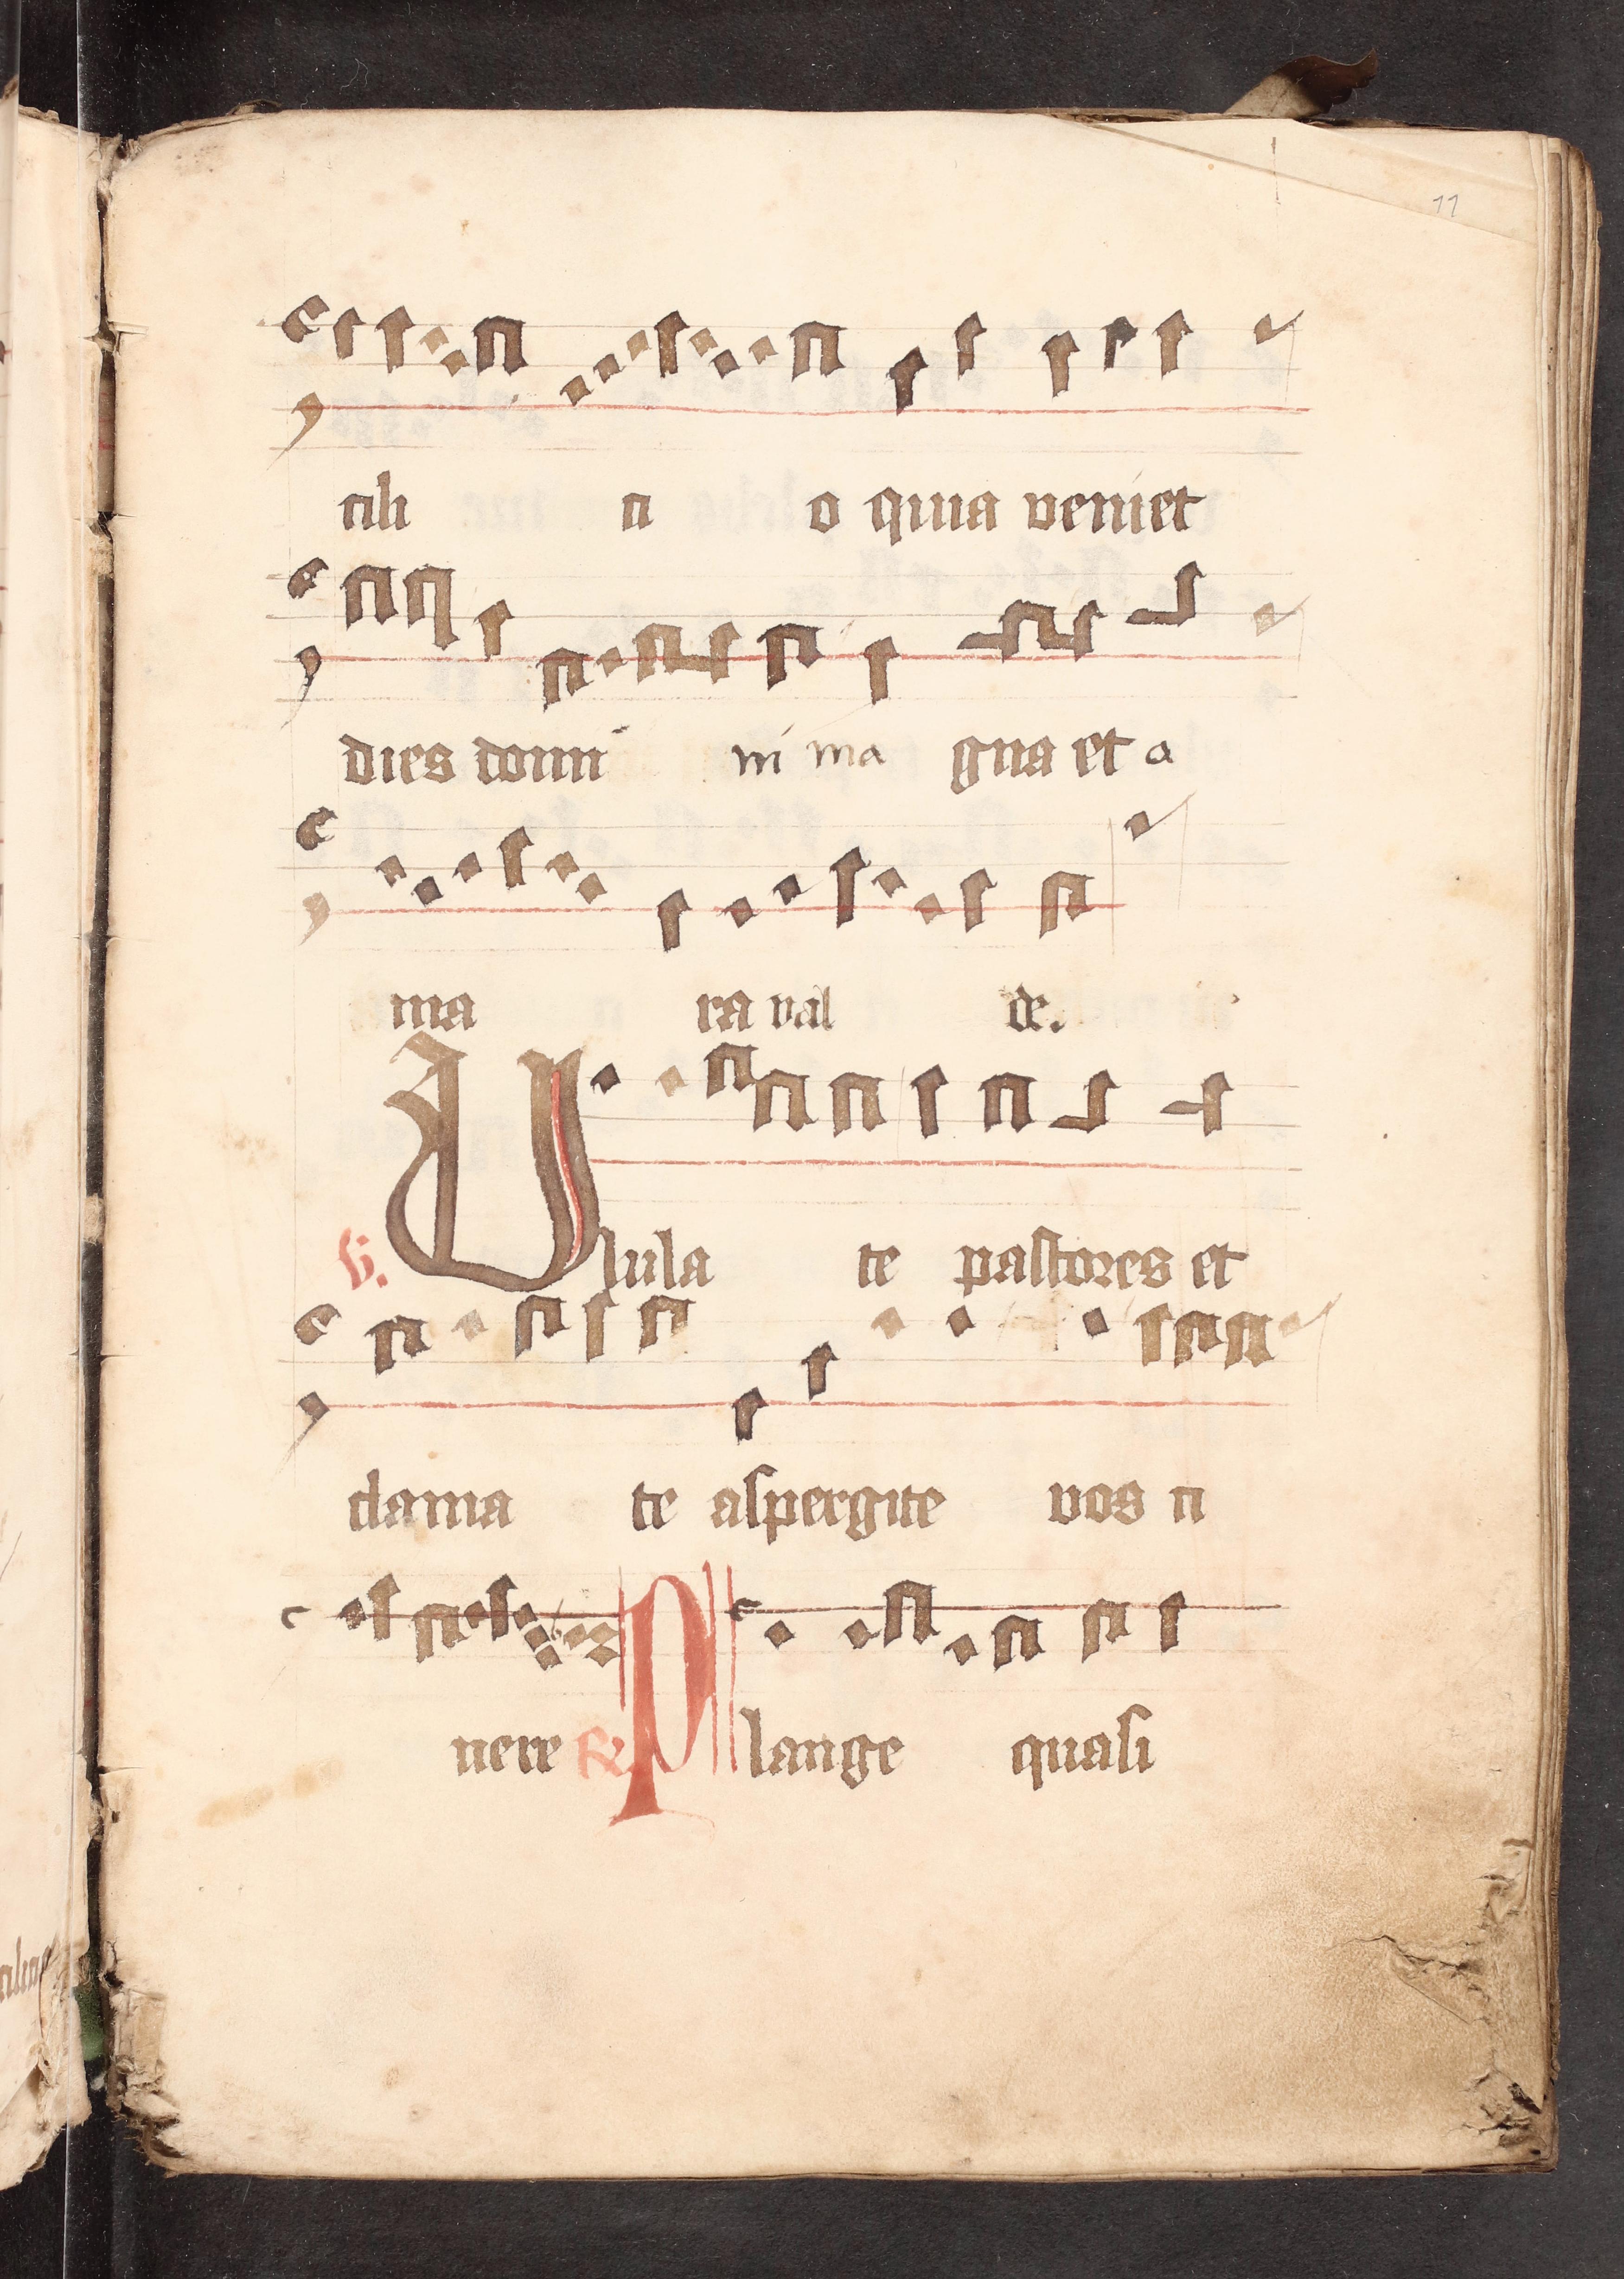 11
cili ci o quia veniet
dies domi ni ma gna et a
ma ra val de.
V. Ulula te pastores et
clama te aspergite vos ci
nere R. Plange quasi